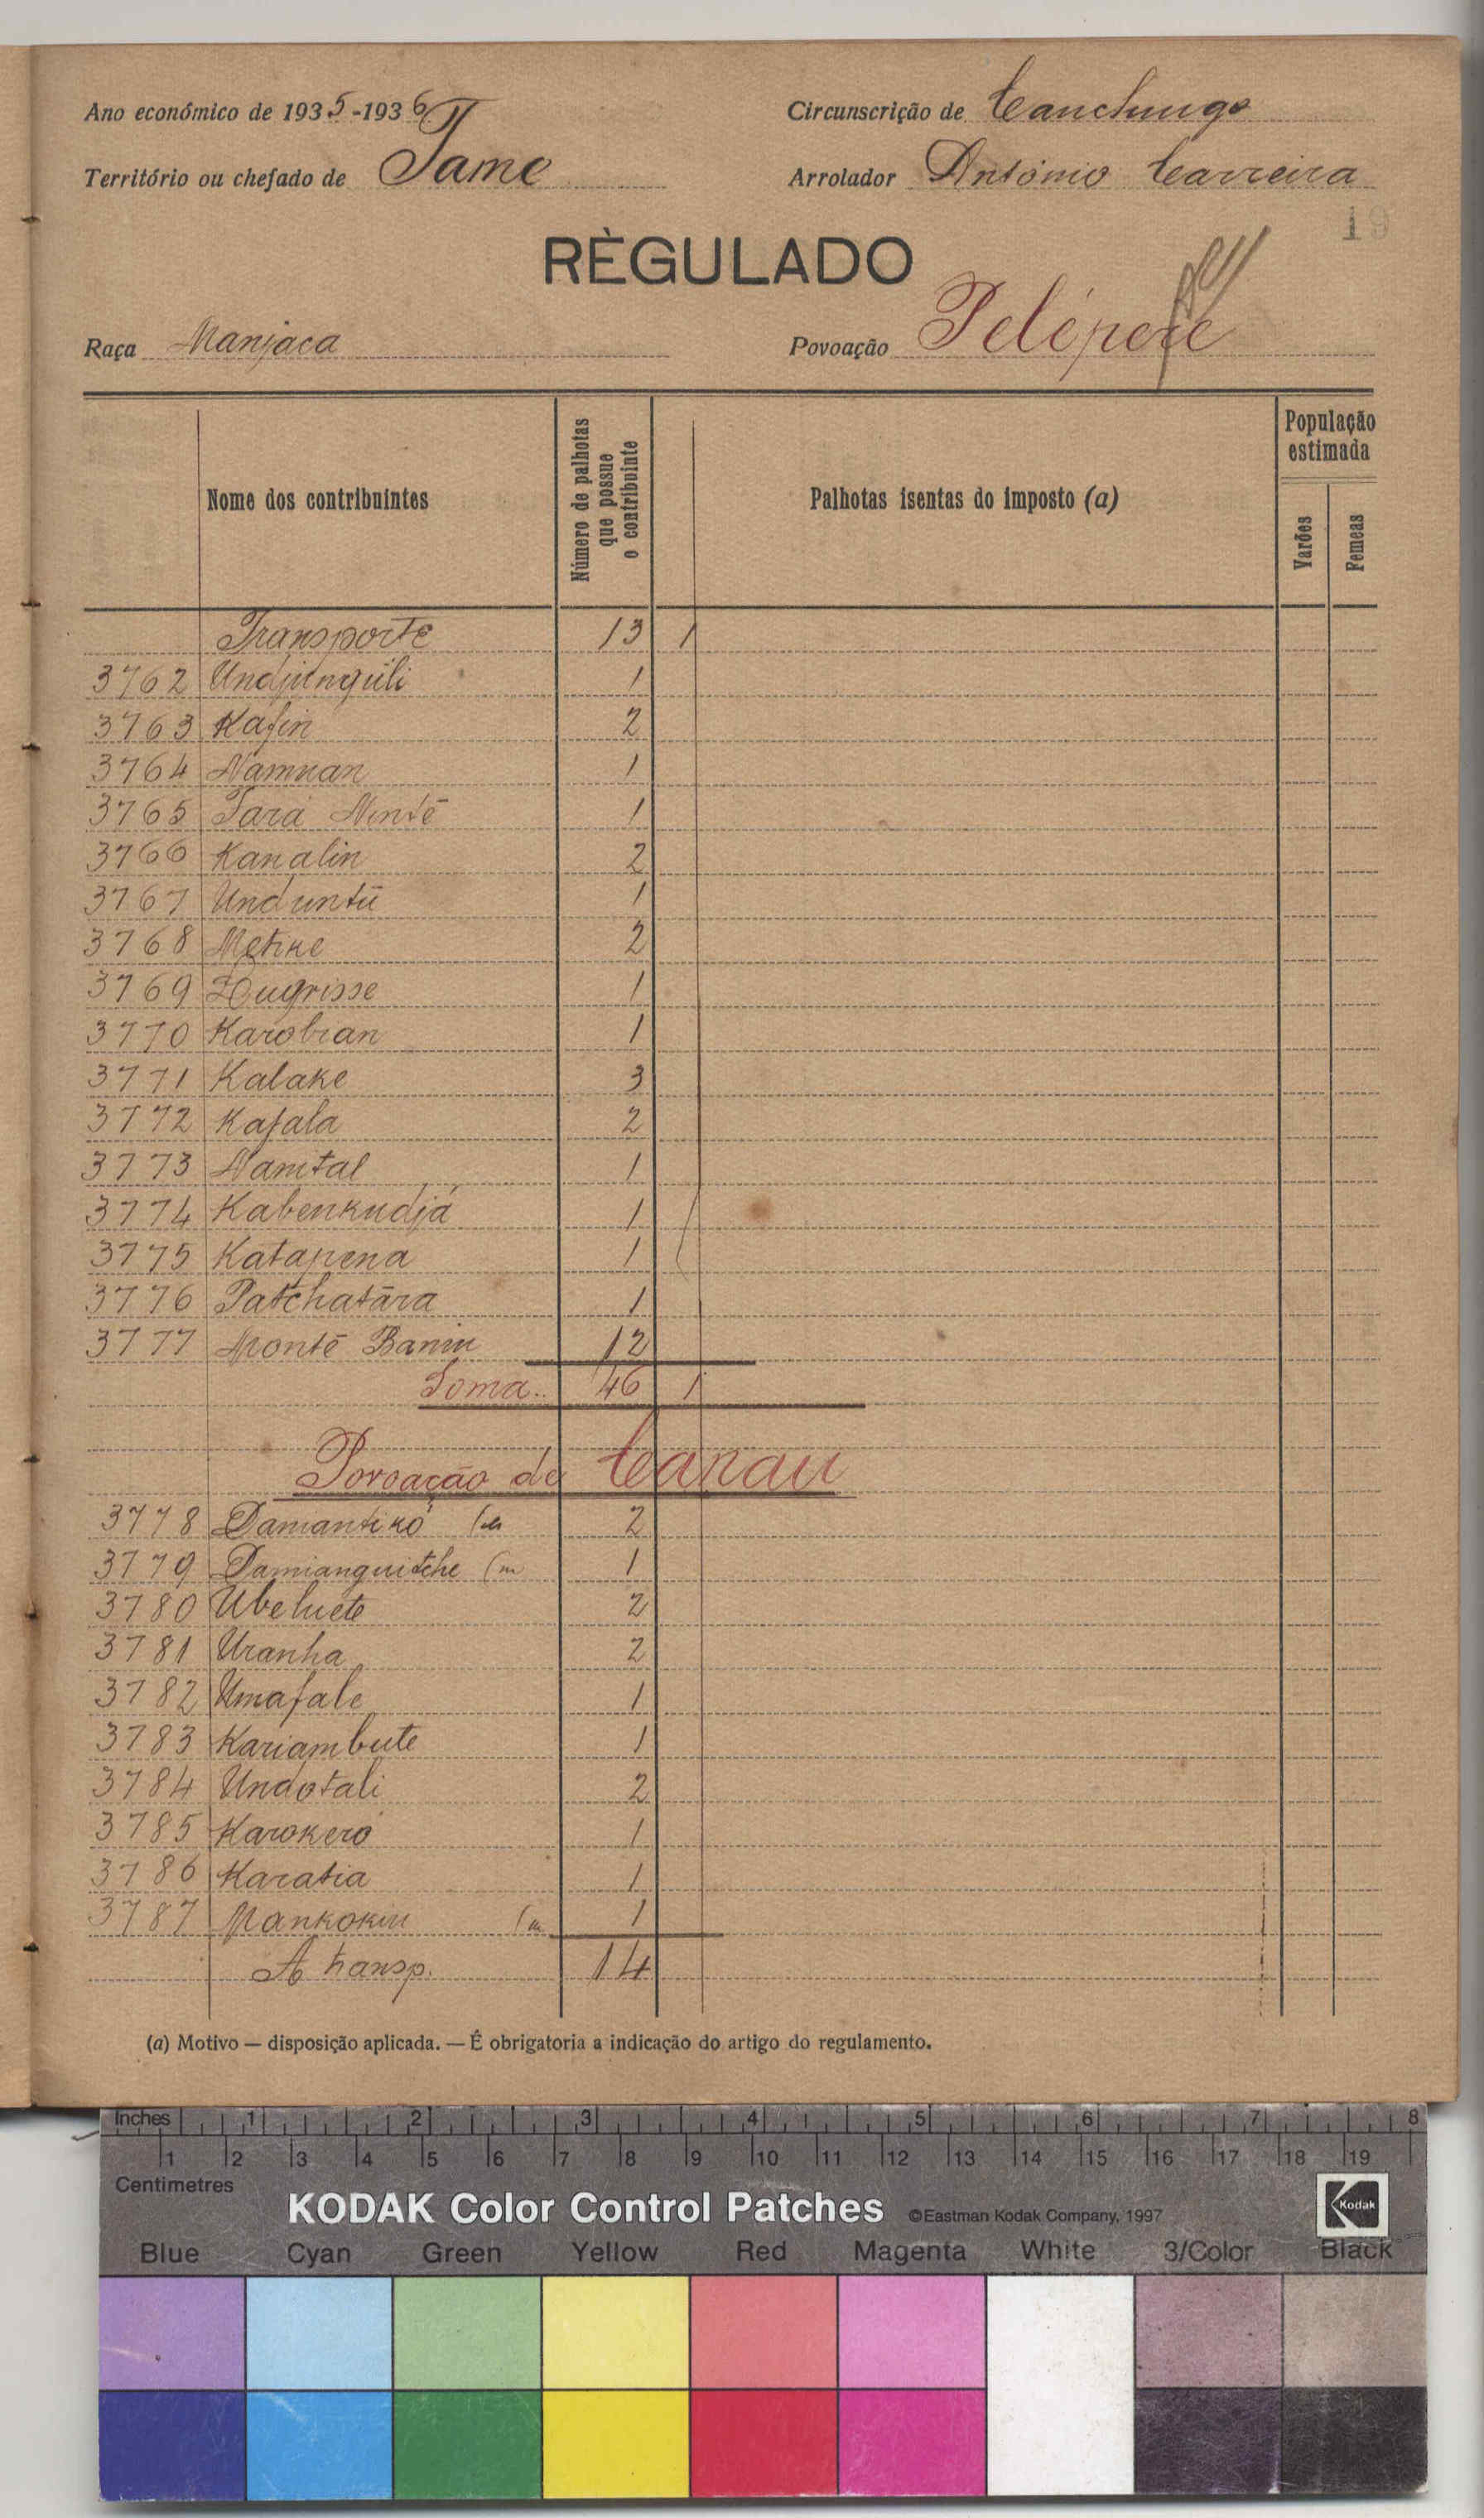 Ano económico de 1935-1936
Circunscrição de Canchungo
Território ou chefado de Tame
Arrolador António Carreira
19
RÈGULADO
Raça Manjaca
Povoação Pelépere
Nome dos contribuintes
Número de palhotas que possue o contribuinte
Palhotas isentas do imposto (a)
População estimada
Varões
Femeas
Transporte 13 1
3762 Undjunguli 1
3763 Kafin 2
3764 Namuan 1
3765 Tara Nentē 1
3766 Kanalin 2
3767 Unduntū 1
3768 Metike 2
3769 Dugrisse 1
3770 Karobian 1
3771 Kalake 3
3772 Kafala 2
3773 Namtal 1
3774 Kabenkudjá 1
3775 Katapena 1
3776 Patchatāra 1
3777 Montē Banin 12
Soma.. 46 1
Povoação de Canau
3778 Damantikó 2
3779 Damianguitche (m 1
3780 Ubeluete 2
3781 Uranha 2
3782 Umafale 1
3783 Kariambute 1
3784 Undotali 2
3785 Karokeró 1
3786 Karatia 1
3787 Mankokin (m 1
A transp. 14
(a) Motivo — disposição aplicada. — É obrigatoria a indicação do artigo do regulamento.
Inches 1 2 3 4 5 6 7 8
1 2 3 4 5 6 7 8 9 10 11 12 13 14 15 16 17 18 19
Centimetres
KODAK Color Control Patches ©Eastman Kodak Company, 1997
Kodak
Blue Cyan Green Yellow Red Magenta White 3/Color Black